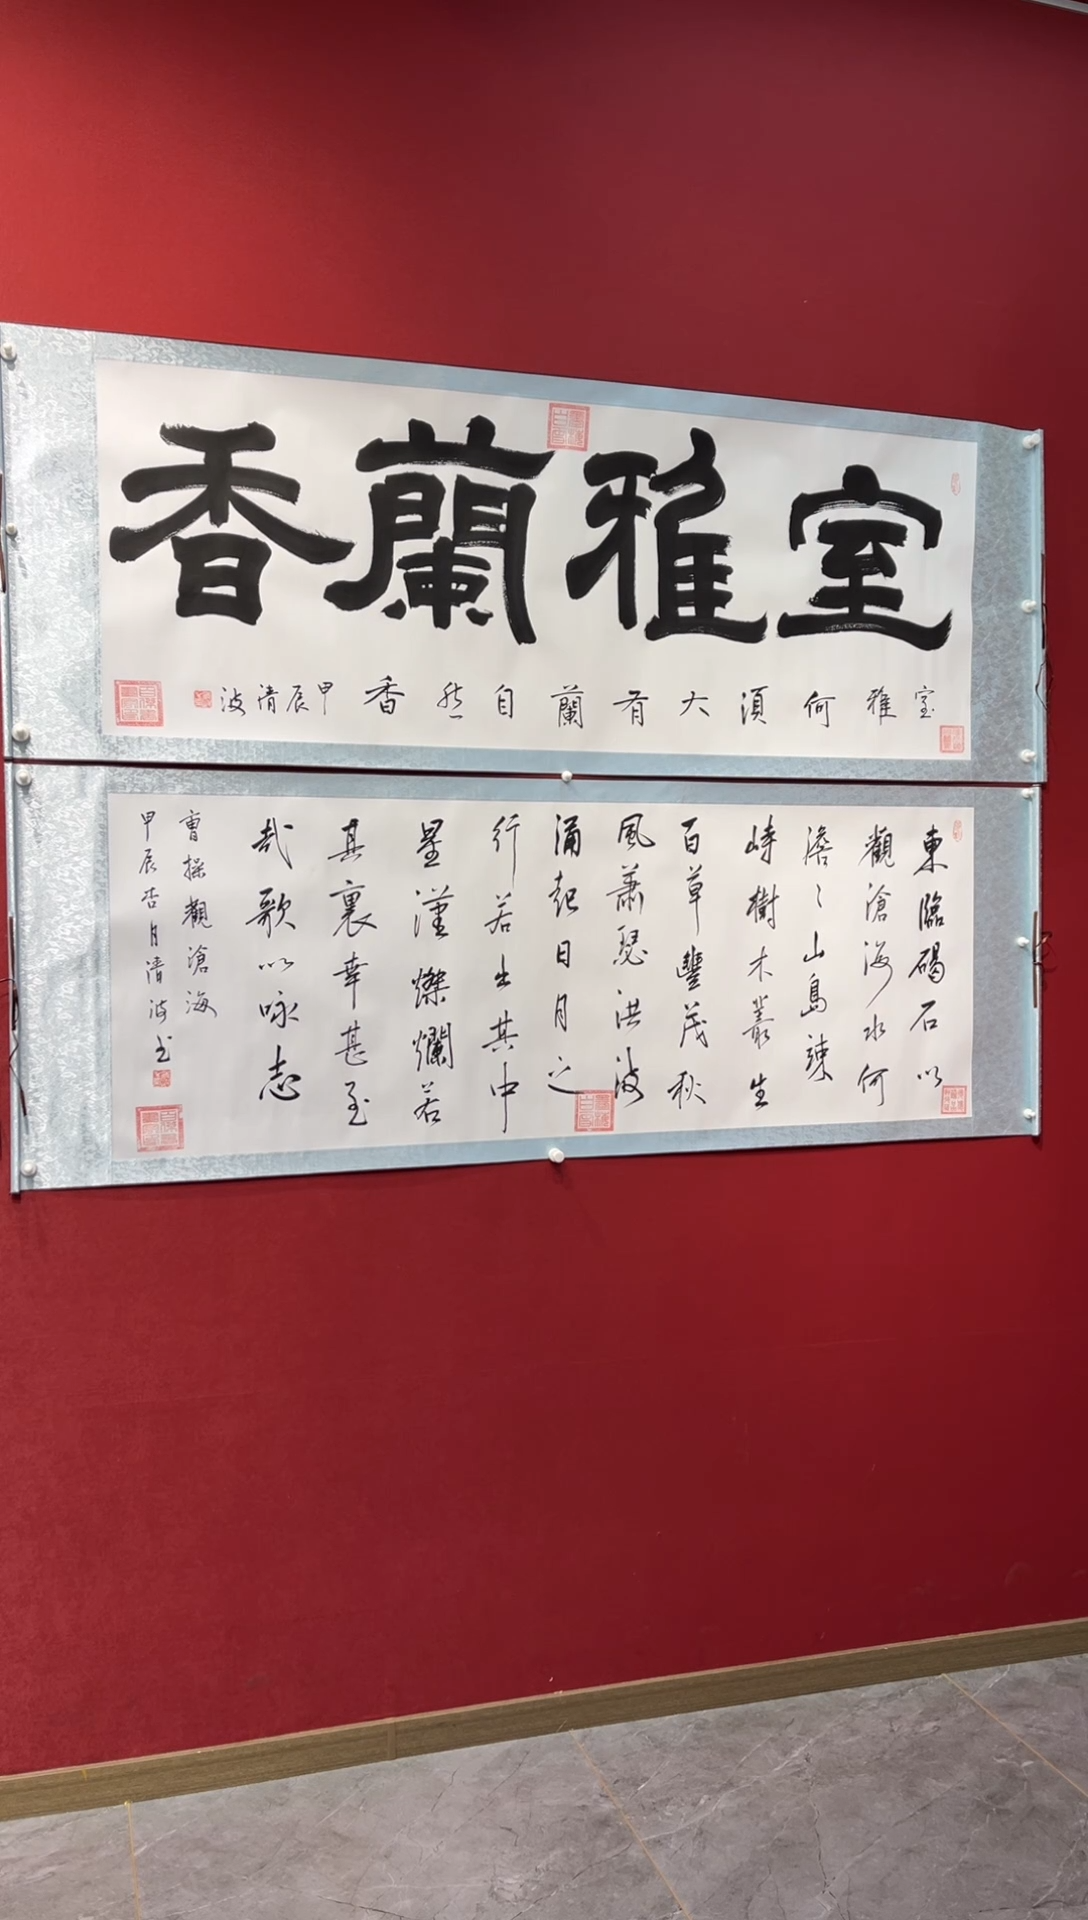 室雅蘭香
室雅何須大有蘭自然香
甲辰清波
東臨碣石以
觀滄海水何
澹〻山島竦
峙樹木叢生
百草豐茂秋
風蕭瑟洪波
涌起日月之
行若出其中
星漢燦爛若
出其裏幸甚至
哉歌以咏志
曹操觀滄海
甲辰杏月清波书